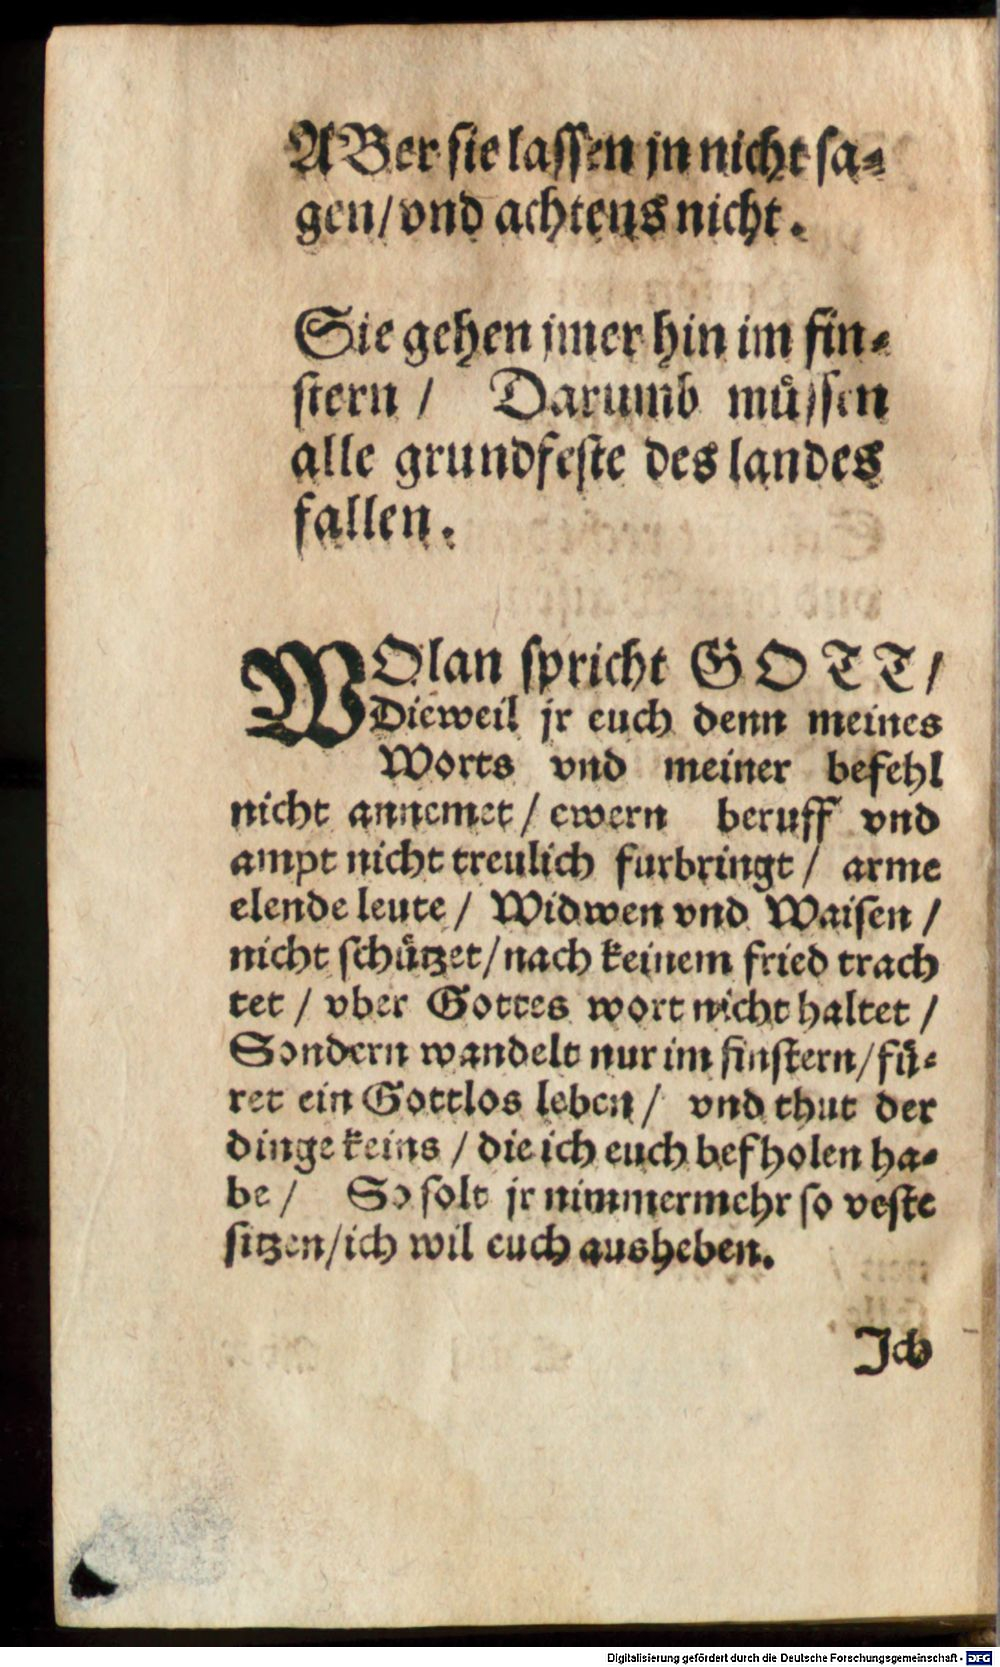 ABer sie lassen jn nicht sa⸗
gen/vnd achtens nicht.
Sie gehen jmer hin im fin⸗
stern / Darumb muͤssen
alle grundfeste des landes
fallen.
WOlan spricht GOTT/
Dieweil jr euch denn meines
Worts vnd meiner befehl
nicht annemet / ewern beruff vnd
ampt nicht treulich furbringt / arme
elende leute / Widwen vnd Waisen /
nicht schuͤtzet/nach keinem fried trach
tet / vber Gottes wort nicht haltet /
Sondern wandelt nur im finstern/fuͤ⸗
ret ein Gottlos leben / vnd thut der
dinge keins / die ich euch befholen ha⸗
be / So solt jr nimmermehr so veste
sitzen/ich wil euch ausheben.
Ich
Digitalisierung gefördert durch die Deutsche Forschungsgemeinschaft - DFG